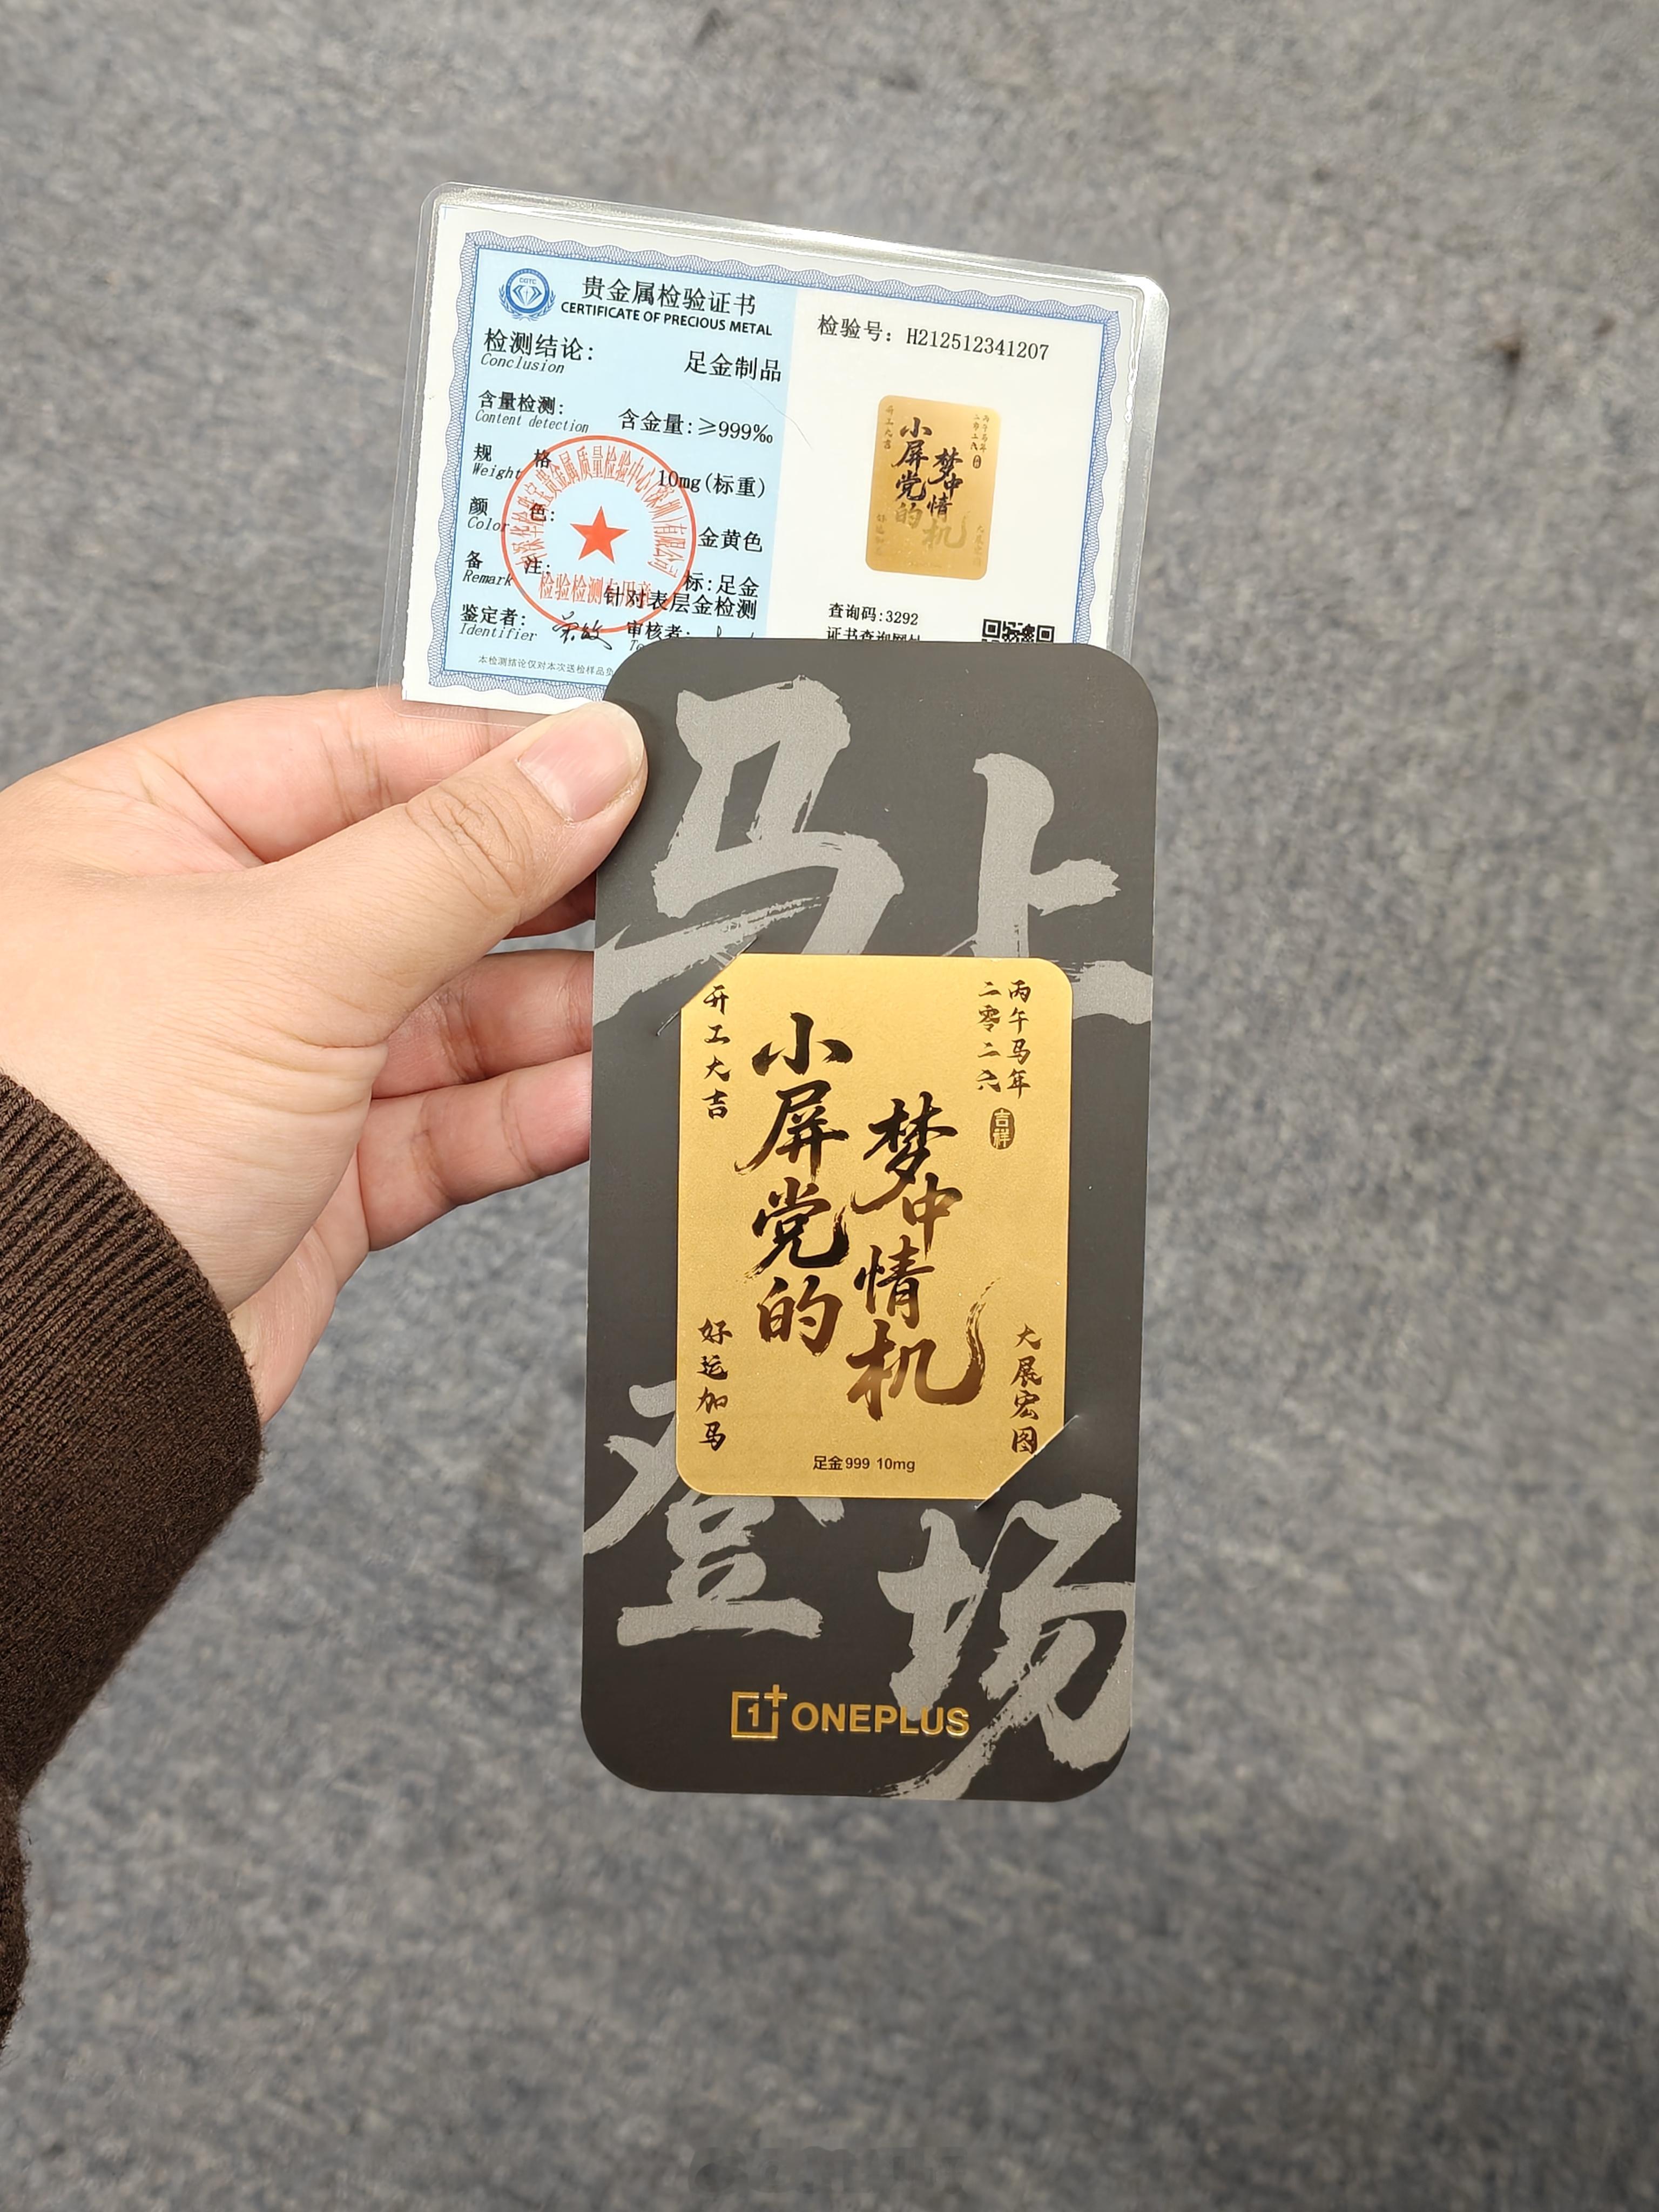 贵金属检验证书
CERTIFICATE OF PRECIOUS METAL
检测结论: 足金制品
Conclusion
含量检测: 含金量:≥999‰
Content detection
规 格 10mg(标重)
Weight
颜 色: 金黄色
Color
备 注: 标:足金
Remark 针对表层金检测
鉴定者: 审核者:
Identifier
本检测结论仅对本次送检样品负
检验检测专用章
检验号: H212512341207
开工大吉
小屏党的
梦中情机
二零二六
丙午马年
查询码:3292
证书查询网址
马上
开工大吉
小屏党的
梦中情机
二零二六
丙午马年
吉祥
好运加马
大展宏图
足金999 10mg
登场
1+ ONEPLUS